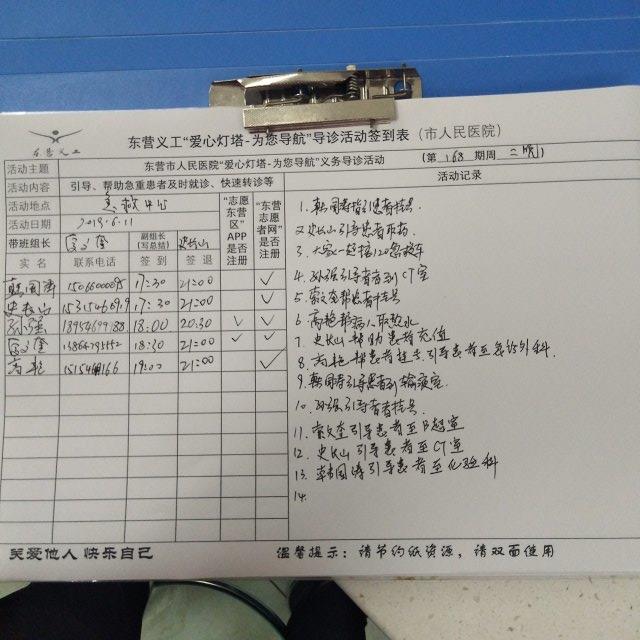 东营义工
东营义工“爱心灯塔-为您导航”导诊活动签到表（市人民医院）
活动主题 东营市人民医院“爱心灯塔-为您导航”义务导诊活动 （第 168 期周 二晚）
活动内容 引导、帮助急重患者及时就诊、快速转诊等 活动记录
活动地点 急救中心
活动日期 2019.6.11
带班组长 副组长（写总结） 史长山
“志愿东营区”APP是否注册
“东营志愿者网”是否注册
实名 联系电话 签到 签退
韩国涛 17:30 21:00 ✓
史长山 17:30 21:00 ✓
孙强 18954699188 18:00 20:30 ✓ ✓
18:30 21:00 ✓ ✓
高艳 19:00 21:00 ✓
1. 韩国涛指引患者挂号
2. 史长山引导患者取药
3. 大家一起接120急救车
4. 孙强引导患者到CT室
5. 帮患者挂号
6. 高艳帮病人取热水
7. 史长山帮助患者充值
8. 高艳帮患者挂号引导患者至急诊外科.
9. 韩国涛引导患者到输液室.
10. 孙强引导患者挂号.
11. 引导患者至B超室
12. 史长山引导患者至CT室
13. 韩国涛引导患者至化验科
14.
关爱他人 快乐自己 温馨提示：请节约纸资源，请双面使用